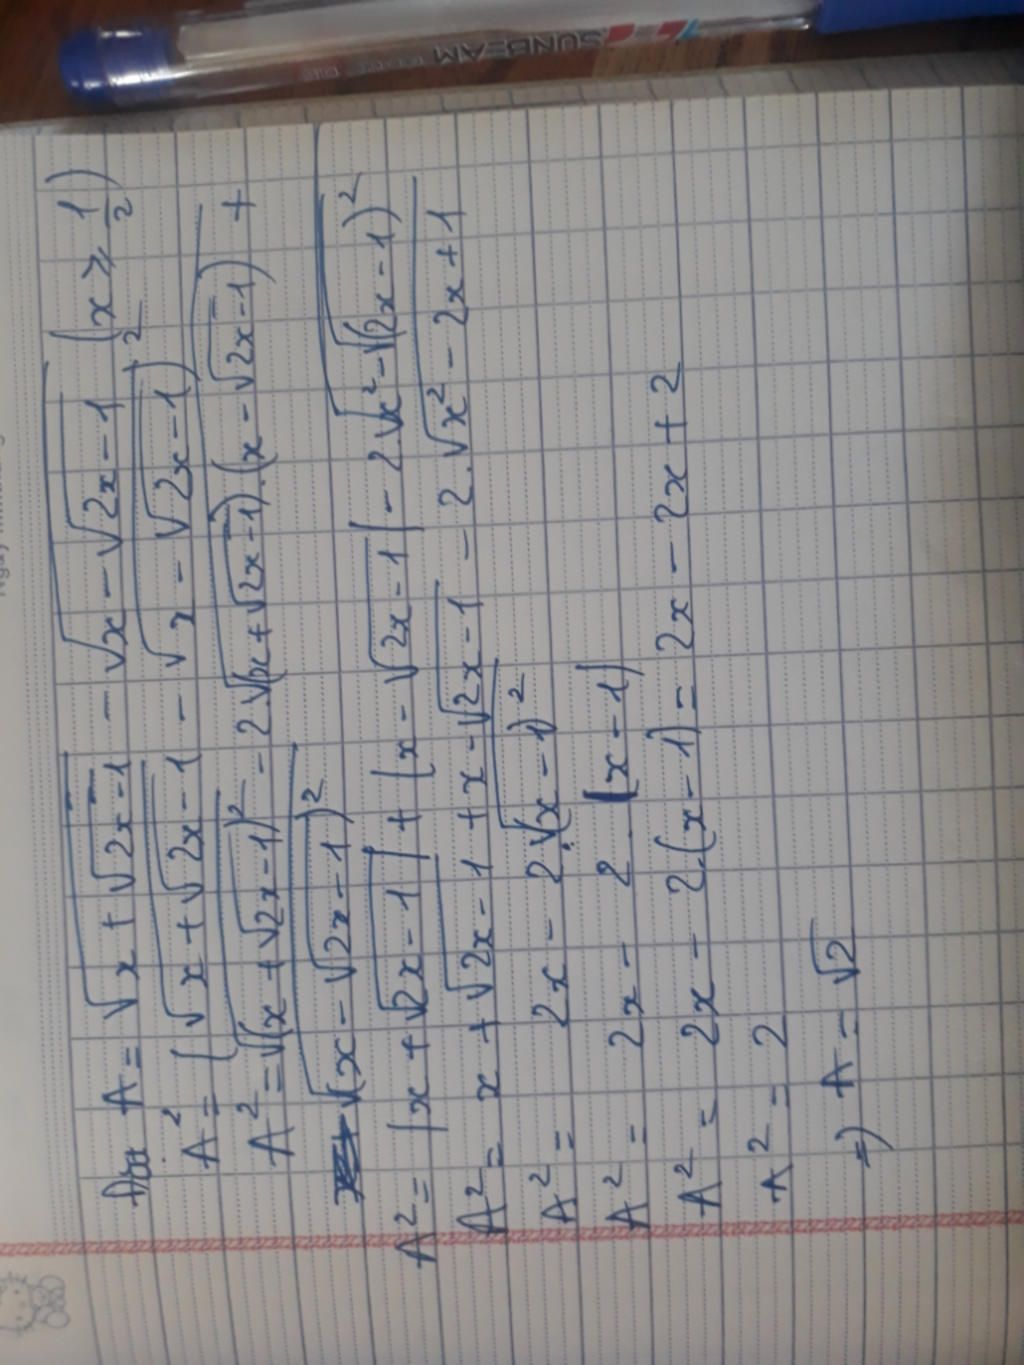 SUNBEAM
A = √(x + √(2x - 1)) - √(x - √(2x - 1)) (x ≥ 1/2)
A² = (√(x + √(2x - 1)) - √(x - √(2x - 1)))²
A² = √((x + √(2x - 1))²) - 2.√((x + √(2x - 1)).(x - √(2x - 1))) +
√((x - √(2x - 1))²)
A² = |x + √(2x - 1)| + |x - √(2x - 1)| - 2.√(x² - √((2x - 1)²))
A² = x + √(2x - 1) + x - √(2x - 1) - 2.√(x² - 2x + 1)
A² = 2x - 2.√((x - 1)²)
A² = 2x - 2 (x - 1)
A² = 2x - 2.(x - 1) = 2x - 2x + 2
A² = 2
=) A = √2